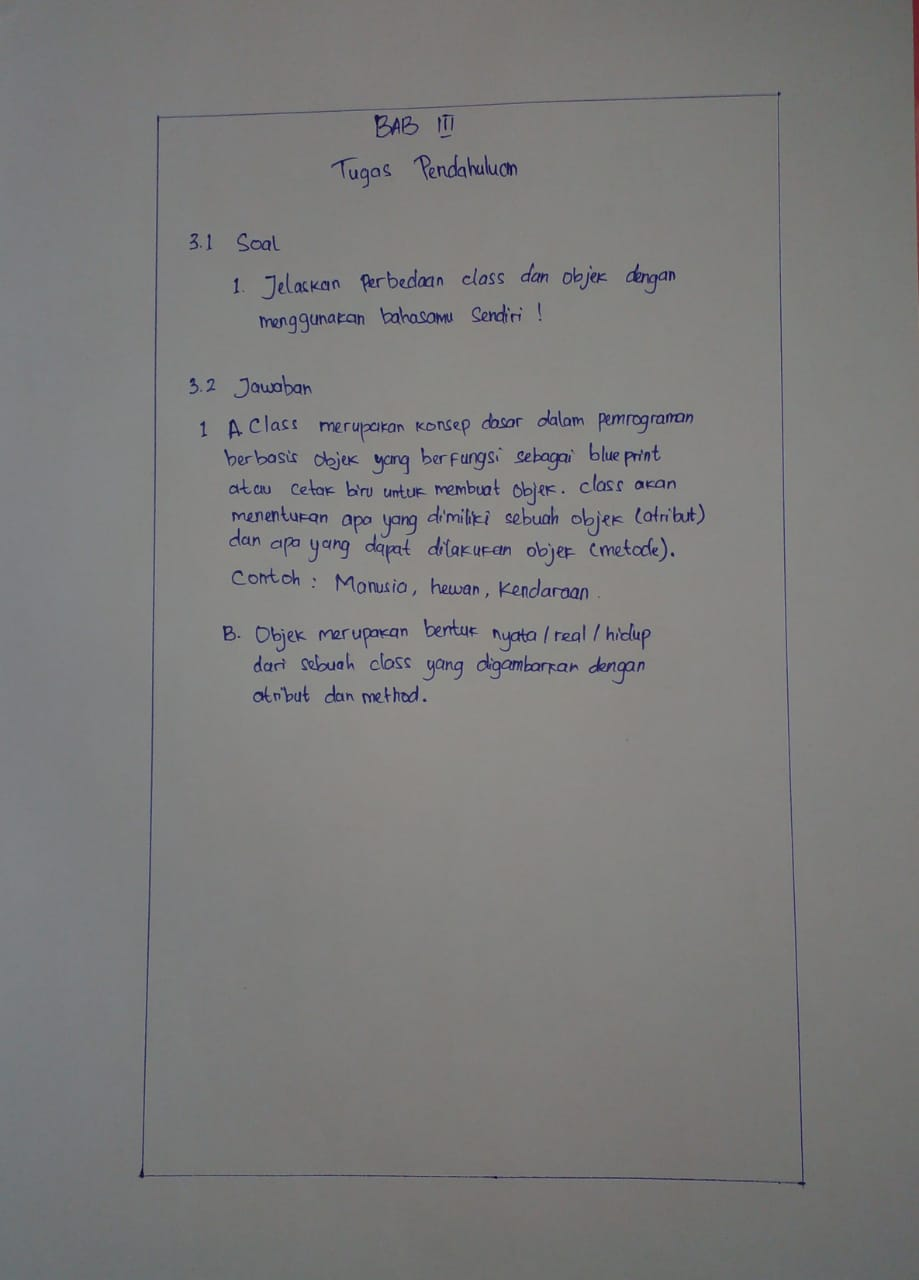 BAB III
Tugas Pendahuluan
3.1 Soal
1. Jelaskan Perbedaan class dan objek dengan
menggunakan bahasamu Sendiri !
3.2 Jawaban
1 A. Class merupakan konsep dasar dalam pemrograman
berbasis objek yang berfungsi sebagai blue print
atau cetak biru untuk membuat objek. class akan
menentukan apa yang dimiliki sebuah objek (atribut)
dan apa yang dapat dilakukan objek (metode).
Contoh : Manusia, hewan, Kendaraan.
B. Objek merupakan bentuk nyata/real/hidup
dari sebuah class yang digambarkan dengan
atribut dan method.